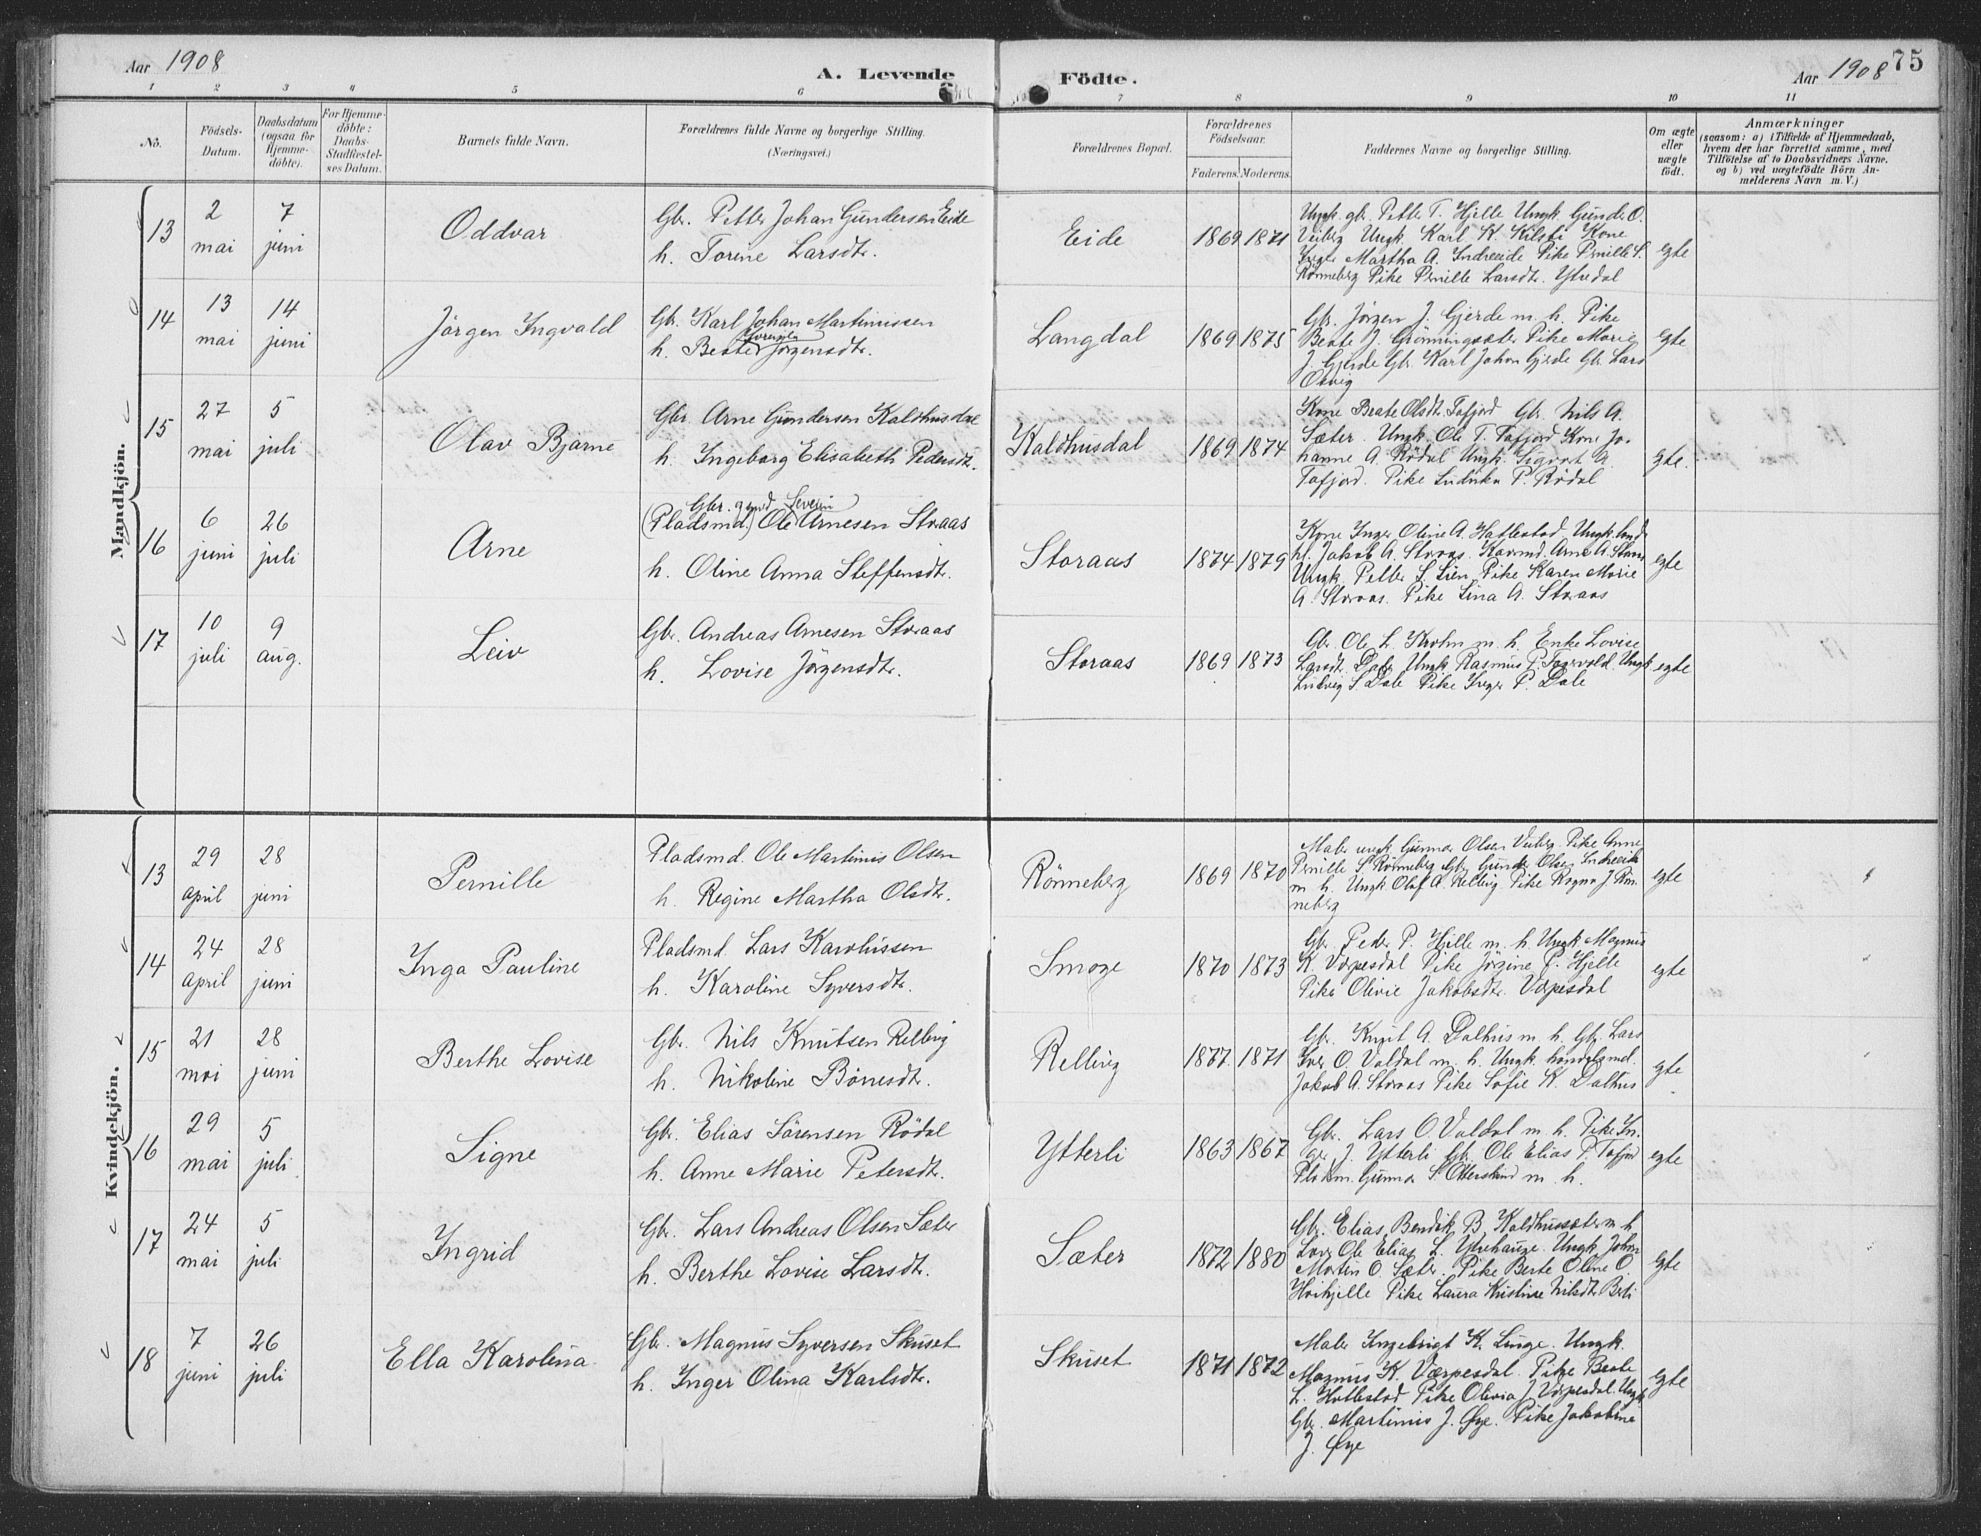 Aar 1908
A. Levende Födte.
Aar 1908
75
1 2 3 4 5 6 7 8 9 10 11
No.
Födsels-
Datum.
Daabsdatum
(ogsaa for
Hjemme-
döbte).
For Hjemme-
döbte:
Daabs-
Stadfæstel-
ses Datum.
Barnets fulde Navn.
Forældrenes fulde Navne og borgerlige Stilling.
(Næringsvei.)
Forældrenes Bopæl.
Forældrenes
Födselsaar.
Faderens. Moderens.
Faddernes Navne og borgerlige Stilling.
Om ægte
eller
uægte
födt.
Anmærkninger
(saasom: a) i Tilfælde af Hjemmedaab,
hvem der har forrettet samme, med
Tilföielse af to Daabsvidners Navne.
og b) ved uægtefödte Börn An-
melderens Navn m. V.)
Mandkjön.
13
2
mai
7
juni
Oddvar
Gbr. Petter Johan Gundersen Eide
h. Torine Larsdtr.
Eide
1869 1871
Ungk. gbr. Petter T. Hjelle Ungk. Gunder O.
Veiberg Ungk Karl K. Kilsti Kone
Martha A. Indreeide Pike Pernille S.
Rönneberg Pike Pernille Larsdtr. Ytredal
egte
14
13
mai
14
juni
Jörgen Ingvald
Gbr. Karl Johan Martinussen
h. Beate Jörgensdtr.
Langdal
1869 1875
Gbr. Jörgen J. Gjerde m. h. Pike
Beate J. Grönningsæter Pike Marie
J. Gjerde Gbr. Karl Johan Gjerde Gbr. Lars
Osvig
egte
15
27
mai
5
juli
Olav Bjarne
Gbr. Arne Gundersen Kaldhusdal
h. Ingeborg Elisabeth Pedersdtr.
Kaldhusdal
1869 1874
Kone Beate Olsdtr. Tafjord Gbr. Nils A.
Sæter. Ungk. Ole T. Tafjord Kone Jo-
hanne A. Rödal Ungk. Sigvart A.
Tafjord. Pike Ludvika P. Rödal
egte.
16
6
juni
26
juli
Arne
Gbr. Severin
(Pladsmd.) Ole Arnesen Storaas
h. Oline Anna Steffensdtr.
Storaas
1874 1879
Kone Inger Oline A. Hatlestad Ungk. land
h. Jakob A. Storaas. Kaarmd. Arne A. Storaas
Ungk. Petter S. Lien Pike Karen Marie
A. Storaas. Pike Lina A. Storaas
egte
17
10
juli
9
aug.
Leiv
Gbr. Andreas Arnesen Storaas
h. Lovise Jörgensdtr.
Storaas
1869 1873
Gbr. Ole L. Krohn m. h. Enke Lovise
Larsdtr. Dale Ungk Rasmus P. Ungk.
Ludvig S. Dale Pike Inger P. Dale
egte
Kvindekjön.
13
29
april
28
juni
Pernille
Pladsmd. Ole Martinus Olsen
h. Regine Martha Olsdtr.
Rönneberg
1869 1870
Maler ungk Gunnar Olsen Veiberg Pike Anne
Pernille S. Rönneberg Gbr. Gunder Olsen Indreeide
m. h. Ungk Olaf A. Relling Pike Ragna J. Rön-
neberg
egte
14
24
april
28
juni
Inga Pauline
Pladsmd. Lars Karolussen
h. Karoline Syversdtr.
Smoge
1870 1873
Gbr. Peder P. Hjelle m. h. Ungk Magnus
K. Værpesdal Pike Jörgine P. Hjelle
Pike Olivie Jakobsdtr. Værpesdal
egte
15
21
mai
28
juni
Berthe Lovise
Gbr. Nils Knutsen Relling
h. Nikoline Bönesdtr.
Relling
1877. 1871
Gbr. Knut A. Dalhus m. h. Gbr. Lars
Iver O. Valdal m. h. Ungk. handelsmd.
Jakob A. Storaas Pike Sofie K. Dalhus
egte
16
29
mai
5
juli
Signe
Gbr. Elias Sörensen Rödal
h. Anne Marie Petersdtr.
Ytterli
1863 1867
Gbr. Lars O Valdal m. h. Pike In-
ger J. Ytterli Gbr. Ole Elias P. Tafjord
Pladsm. Gunnar S. m. h.
egte
17
24
mai
5
juli
Ingrid
Gbr. Lars Andreas Olsen Sæter
h. Berthe Lovise Larsdtr.
Sæter
1872 1880
Gbr. Elias Bendik B. Kaldhussæter m. h
Ole Elias L. Ytrehauge. Ungk. Johan
Martin O. Sæter. Pike Berte Oline O.
Hoihjelle Pike Laura Kristine Nilsdtr. Berli
egte
18
7
juni
26
juli
Ella Karolina
Gbr. Magnus Syversen Skuset
h. Inger Olina Karlsdtr.
Skuset
1871 1872
Maler Ingebrigt K. Linge. Ungk.
Magnus K. Værpesdal. Pike Beate
L. Hatlestad Pike Olivia J Værpesdal. Ungk
Gbr. Martinus J. Øye. Pike Jakobine
J. Øye
egte